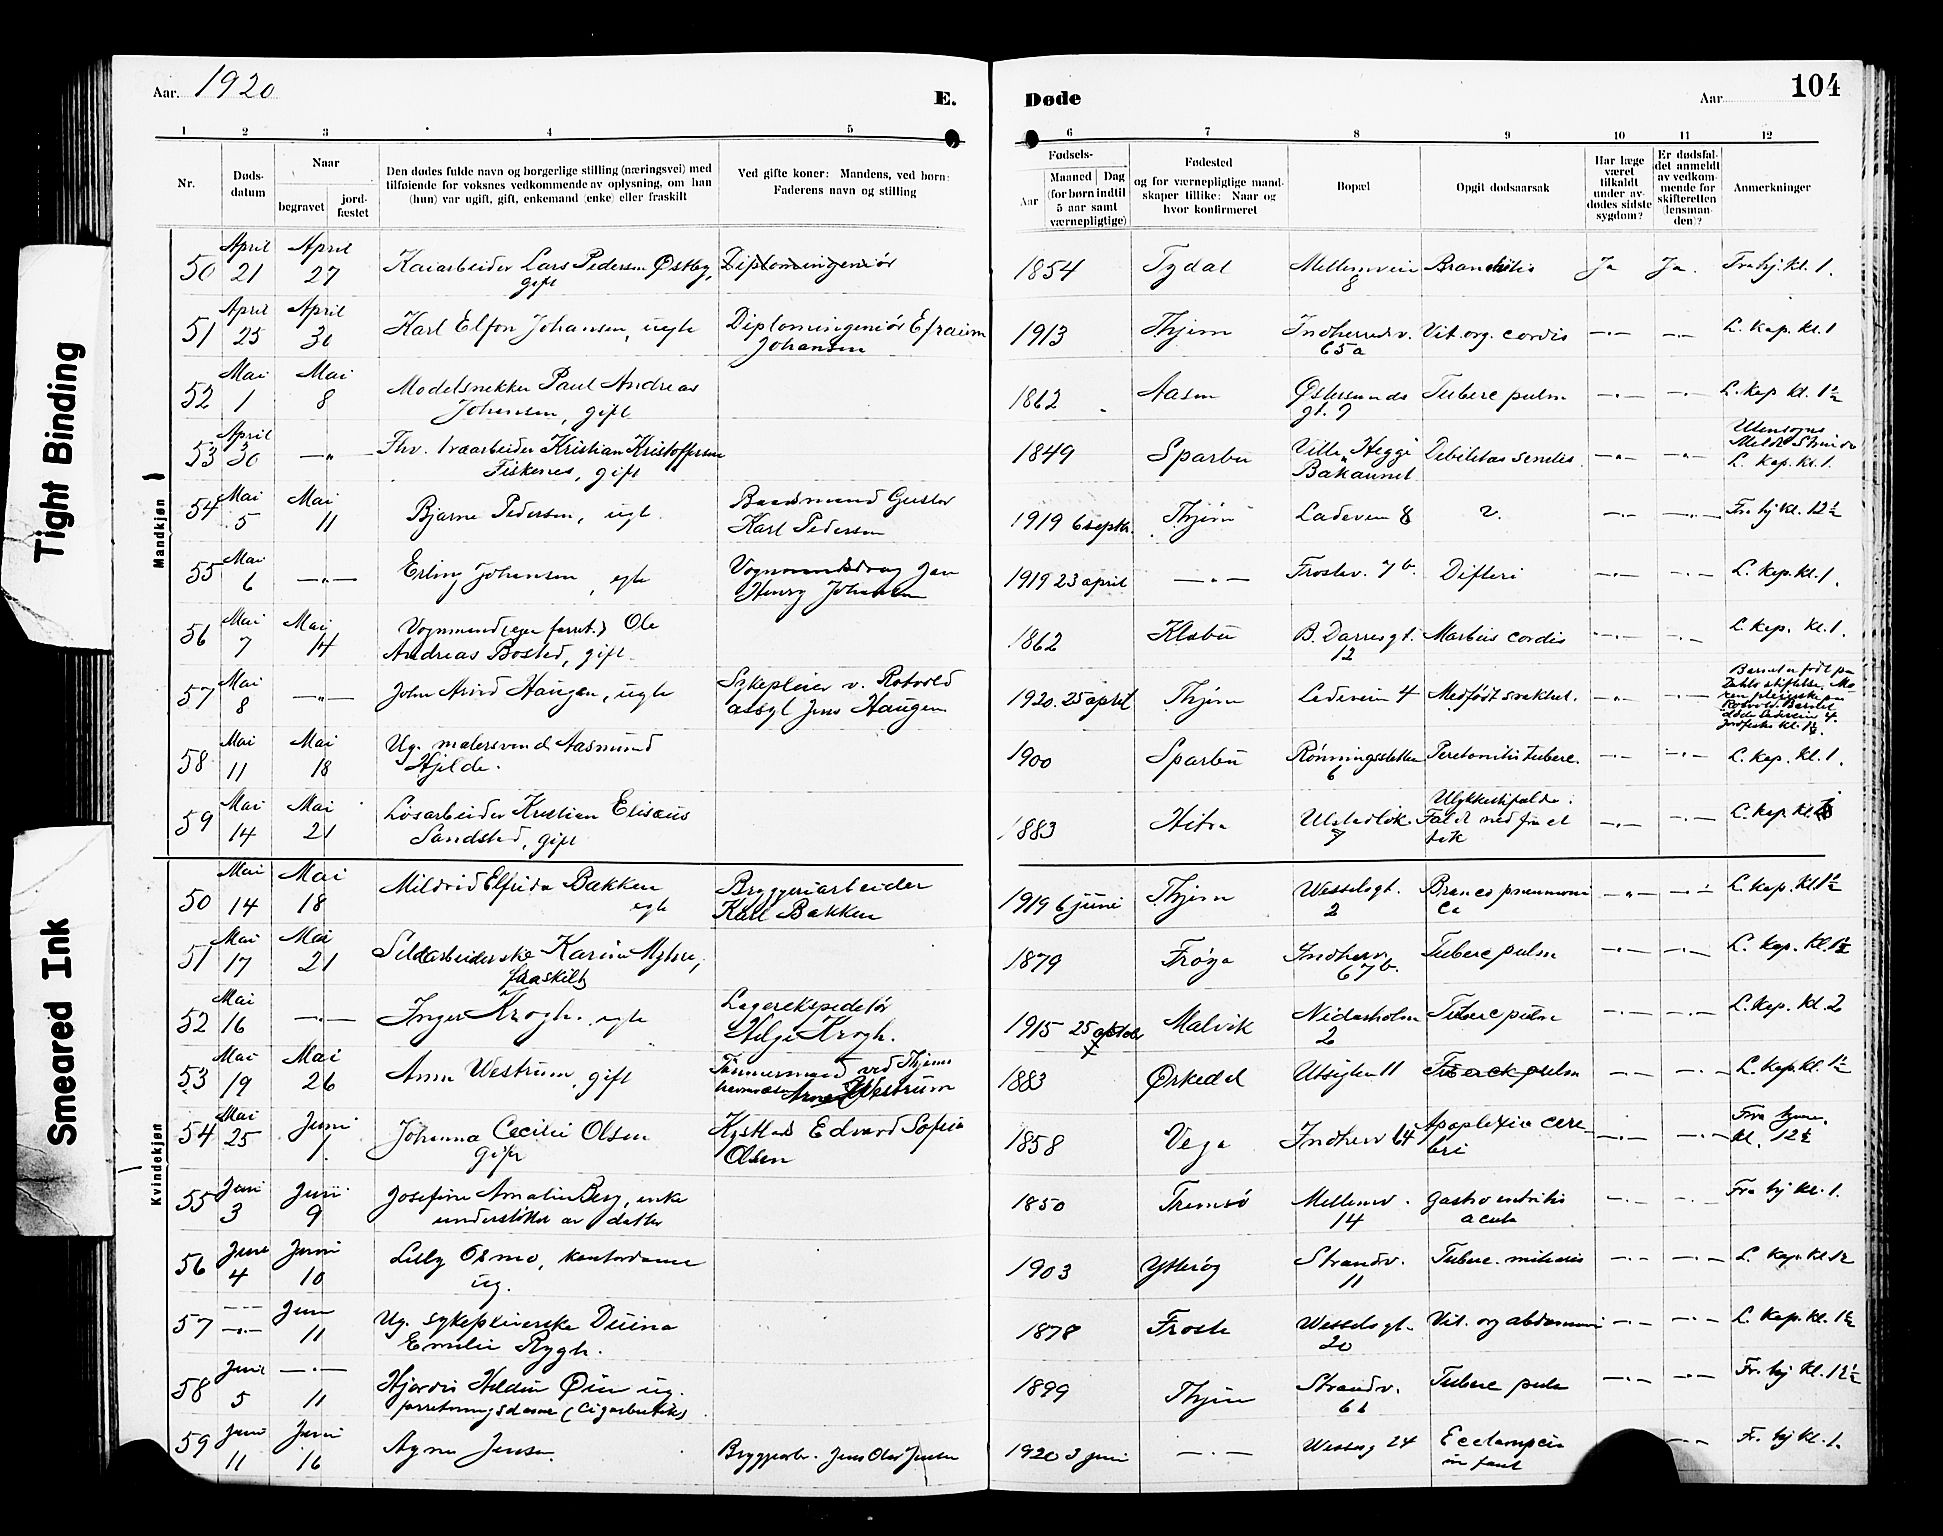 Aar. 1920
E.
Døde
Aar
104
1 2 3 4 5 6 7 8 9 10 11 12
Nr.
Døds-
datum
Naar
begravet
jord-
fæstet
Den dødes fulde navn og borgerlige stilling (næringsvei) med
tilføiende for voksnes vedkommende av oplysning, om han
(hun) var ugift, gift, enkemand (enke) eller fraskilt
Ved gifte koner: Mandens, ved børn:
Faderens navn og stilling
Fødsels-
Aar
Maaned Dag
(for børn indtil
5 aar samt
værnepligtige)
Fødested
og for værnepligtige mand-
skaper tillike: Naar og
hvor konfirmeret
Bopæl
Opgit dødsaarsak
Har læge
været
tilkaldt
under av-
dødes sidste
sygdom?
Er dødsfal-
det anmeldt
av vedkom-
mende for
skifteretten
(lensman-
den)?
Anmerkninger
Mandkjøn
50 April 21 April 27 Kaiarbeider Lars Pedersen Østby, gift Diplomingeniør 1854 Tydal Mellemveien 8 Bronchitis Ja Ja. Fra hj. kl. 1.
51 April 25 April 30 Karl Elfon Johansen, ugte Diplomingeniør Efraim Johansen 1913 Thjem Indherredsv. 65a Vit. org. cordis L. kap. kl. 1
52 Mai 1 Mai 8 Modelsnekker Paul Andreas Johansen, gift 1862 Aasen Østersunds gt. 9 Tuberc pulm L. kap kl. 1½
53 April 30 —"— Fhv. træarbeider Kristian Kristoffersen Fiskenes, gift 1849 Sparbu Villa Hegge Bakaunet Debilitas senilis L. kap. kl. 1.
54 Mai 5 Mai 11 Bjarne Pedersen, ugt. Baadsmand Gustav Karl Pedersen 1919 6 septbr. Thjem Ladeveien 8 ?. Fra hj kl. 12½
55 Mai 6 —"— Erling Johansen, egte Henry Johansen 1919 23 april —"— Frostav. 7 b. Difteri L. kap. kl. 1.
56 Mai 7 Mai 14 Vognmand (egen forret.) Ole Andreas Bosted, gift. 1862 Klæbu B. Darresgt. 12 Morbus cordis L. kap. kl. 1.
57 Mai 8 —"— John Arvid Haugen, ugte Sykepleier v. Rotvold asyl Jens Haugen 1920. 25 april Thjem Ladeveien 4 Medfødt svakhet.
58 Mai 11 Mai 18 Ug. malersvend Aasmund Hjelde. 1900 Sparbu Rønningsletten 6 Peretonitis tuberc. L. kap. kl. 1.
59 Mai 14 Mai 21 Løsarbeider Kristian Elisæus Sandstad, gift 1883 Hitra 7 Ulykkestilfælde: Faldt ned fra et tak L. kap kl.
Kvindekjøn
50 Mai 14 Mai 18 Mildrid Elfrida Bakken egte Bryggeriarbeider Karl Bakken 1919 6 juni Thjem Wesselsgt. 2 Bronco pneumonica L. kap. kl 1½
51 Mai 17 Mai 21 Sildarbeiderske Karine Myhre, fraskilt 1879 Frøya Indherv. 67 b. Tuberc pulm L. kap. kl. 1½
52 Mai 16 —"— Inger Krogh. egte Lagerekspeditør Helge Krogh. 1915 25 oktobr Malvik Nidarholm 2 Tuberc pulm L. kap. kl. 2
53 Mai 19 Mai 26 Anna Westrum, gift Tømmermand ved Thjems Arne Westrum 1883 Ørkedal Utsigten 11 Tuberck pulm L. kap. kl. 1½
54 Mai 25 Juni 1. Johanna Cecilie Olsen gift Edvard Sofus Olsen 1858 Vega Indherv 64 Apoplexia cere-bri Fra hj. kl. 12½
55 Juni 3 Juni 9 Josefine Amalie Berg, enke understøttes av datter 1850 Tromsø Mellemv. 14 gastro entritis acuta Fra hj kl. 1.
56 Juni 4 Juni 10 Lilly Osmo, kontordame ug. 1903 Ytterøy Strandv. 11 Tuberc. miliaris L. kap. kl 12
57 —"— Juni 11 Ug. sykepleierske Emilie Rygh. 1878 Frosta Wesselsgt. 20 Vit. org abdominis L. kap. kl. 1½
58 Juni 5 —"— 11 Hjørdis Øien ug. forretningsdame (Cigarbutik) 1899 Thjem Strandv. Tuberc pulm Fr. hj kl. 12½
59 Juni 11 Juni 16 Agnes Jensen. Bryggeriarb. Jens Olaf Jensen 1920 3 juni —"— Wesselsg 24 Eclampsia infant Fr. hj kl. 1.
Tight Binding
Smeared Ink